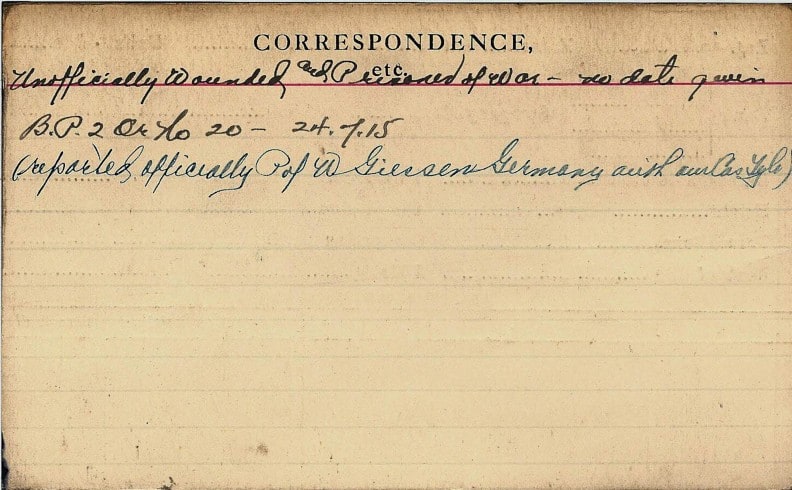 CORRESPONDENCE,
etc.
Unofficially Wounded and Prisoner of War - no date given
B.P. 2 Or No 20 - 24.7.15
(reported officially P of W Giessen Germany auth